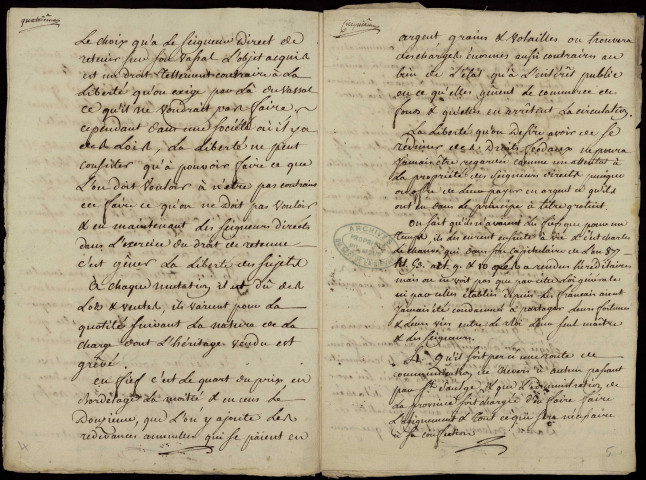 quatrième
Le choix qu'a le seigneur direct de
retenir sur son vassal l'objet acquis
est un droit tellement contraire à la
liberté qu'on exige par là du vassal
ce qu'il ne voudrait pas faire,
cependant dans une société où il y a
des Loix, la liberté ne peut
consister qu'à pouvoir faire ce que
l'on doit vouloir à n'être pas contraint
de faire ce qu'on ne doit pas vouloir
& en maintenant les seigneurs directs
dans l'exercice du droit de retenue
c'est gêner la liberté des sujets
à chaque mutation il est dû des
Lods & ventes, ils varient pour la
quotité suivant la nature de la
charge dont l'héritage vendu est
grévé.
en fief c'est le quart du prix en
Bordelage la moitié & en cens le
Douzieme, que l'on y ajoute les
redevances annuelles qui se paient en
4
cinquième
argent grains & volailles on trouvera
des charges énormes aussi contraires au
bien de l'état qu'à l'intérêt public
en ce qu'elles gênent le commerce des
fonds & qu'elles en arrêtent la circulation.
La liberté qu'on desire avoir de se
redimer des Droits féodaux ne pourra
jamais être regardée comme un attentat à
la propriété des seigneurs directs puisque
on offre de leur payer en argent ce qu'ils
ont eu dans le principe à titre gratuit.
On sait qu'ils n'avaient les fiefs que pour un
temps, ils les eurent ensuite à vie & c'est charles
le chauve qui dans son capitulaire de l'an 877
tit. 53. art. 9. & 10 les a rendus héréditaires
mais on ne voit pas que par cette loi générale
ni par celles établies depuis les français aient
jamais été condamnés à partager leur fortune
& leurs vies entre le Roi leur seul maître
& des seigneurs.
4. qu'il soit percé une route de
communication de Nevers à autun passant
par & que l'administration de
la province soit chargée d'en faire faire
l'alignement & tout ce qui sera nécessaire
à sa confection
5
ARCHIVES